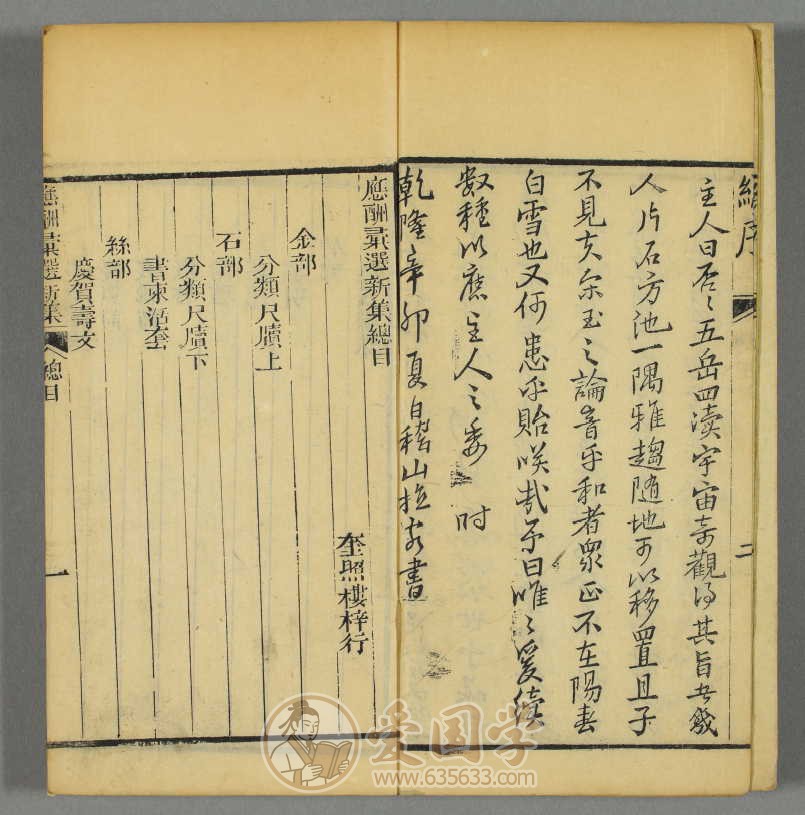 續序
二
主人曰否〻五岳四瀆宇宙奇觀得其旨者幾
人片石方池一隅雅趨随地可以移置且子
不見夫宋玉之論音乎和者衆正不在陽春
白雪也又何患乎貽笑哉予曰唯〻爰續
数種以應主人之委 时
乾隆辛卯夏日稽山拉客書
應酬彙選新集總目
奎照樓梓行
金部
分類尺牘上
石部
分類尺牘下
書柬活套
絲部
慶賀壽文
應酬彙選新集 總目 一
爱国学
www.635633.com